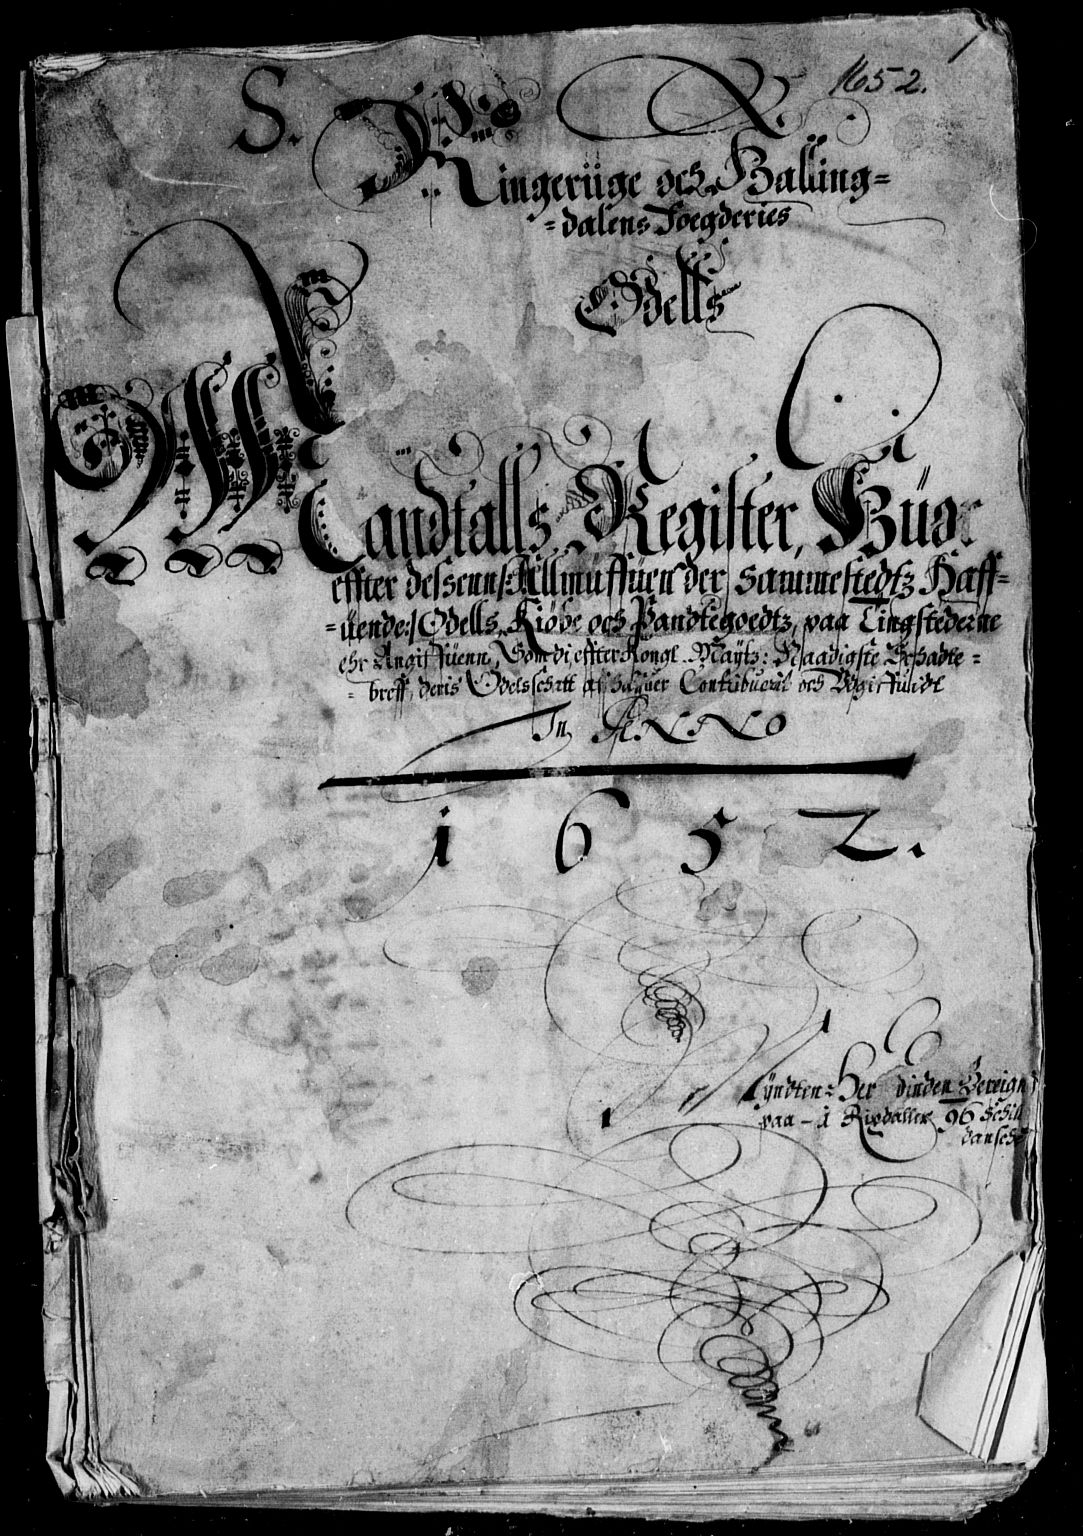 1652.
S.
Ringerüge och Halling=
=dalens Foegderies
Odells
Mandtalls Register, Huor
effter dessenn Allmuffüen der sammestedtz Haff=
=üende /: Odells, Kiøbe och Pandtegoedtz, paa Tingstederne
ehr Angiffüenn, Som di effter Kongl. Maytz: Naadigste Schadte=
=breff, deris Odelsschatt aff Contribuerit och Udgiffuidt
In ANNO
1652.
Lÿndten Her dinden Bereign
paa - à Rixdaller 96 Schill
dansche